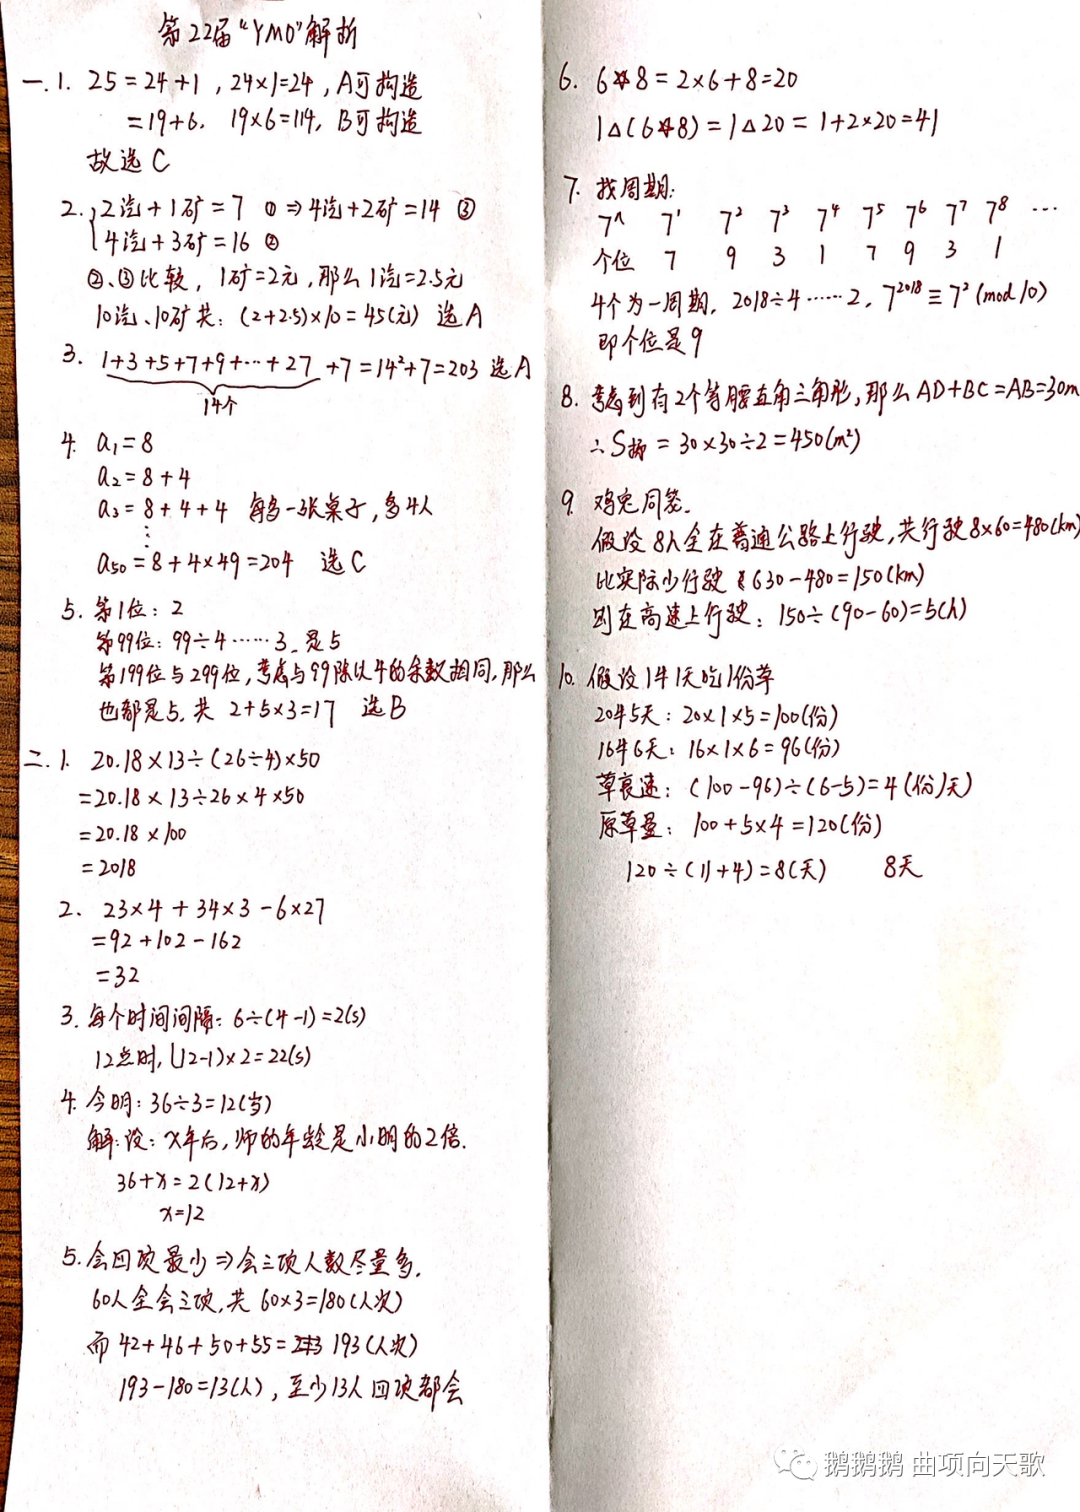 第22届“YMO”解析
一.1. 25=24+1,24×1=24,A可构造
=19+6. 19×6=114, B可构造
故选C
2. {2汽+1矿=7 ① ⇒4汽+2矿=14 ③
4汽+3矿=16 ②
②、③比较, 1矿=2元,那么1汽=2.5元
10汽、10矿共: (2+2.5)×10=45(元) 选A
3. 1+3+5+7+9+…+27 +7=14²+7=203 选A
14个
4. a₁=8
a₂=8+4
a₃=8+4+4 每多一张桌子,多4人
⋮
a₅₀=8+4×49=204 选C
5. 第1位: 2
第99位: 99÷4……3. 是5
第199位与299位,考虑与99除以4的余数相同,那么
也都是5. 共 2+5×3=17 选B
二.1. 20.18×13÷(26÷4)×50
=20.18×13÷26×4×50
=20.18×100
=2018
2. 23×4+34×3-6×27
=92+102-162
=32
3. 每个时间间隔: 6÷(4-1)=2(s)
12点时,(12-1)×2=22(s)
4. 今明: 36÷3=12(岁)
解:设: x年后,师的年龄是小明的2倍.
36+x=2(12+x)
x=12
5. 会四项最少⇒会三项人数尽量多.
60人全会三项,共 60×3=180(人次)
而 42+46+50+55= 193(人次)
193-180=13(人), 至少13人四项都会
6. 6☆8=2×6+8=20
1△(6☆8)=1△20=1+2×20=41
7. 找周期:
7^ 7¹ 7² 7³ 7⁴ 7⁵ 7⁶ 7⁷ 7⁸ …
个位 7 9 3 1 7 9 3 1
4个为一周期. 2018÷4……2, 7²⁰¹⁸≡7²(mod 10)
即个位是9
8. 考虑到有2个等腰直角三角形,那么AD+BC=AB=30m
∴S梯=30×30÷2=450(m²)
9. 鸡兔同笼.
假设8h全在普通公路上行驶,共行驶8×60=480(km)
比实际少行驶 630-480=150(km)
则在高速上行驶: 150÷(90-60)=5(h)
10. 假设1牛1天吃1份草
20牛5天: 20×1×5=100(份)
16牛6天: 16×1×6=96(份)
草衰速: (100-96)÷(6-5)=4(份/天)
原草量: 100+5×4=120(份)
120÷(11+4)=8(天) 8天
鹅鹅鹅 曲项向天歌